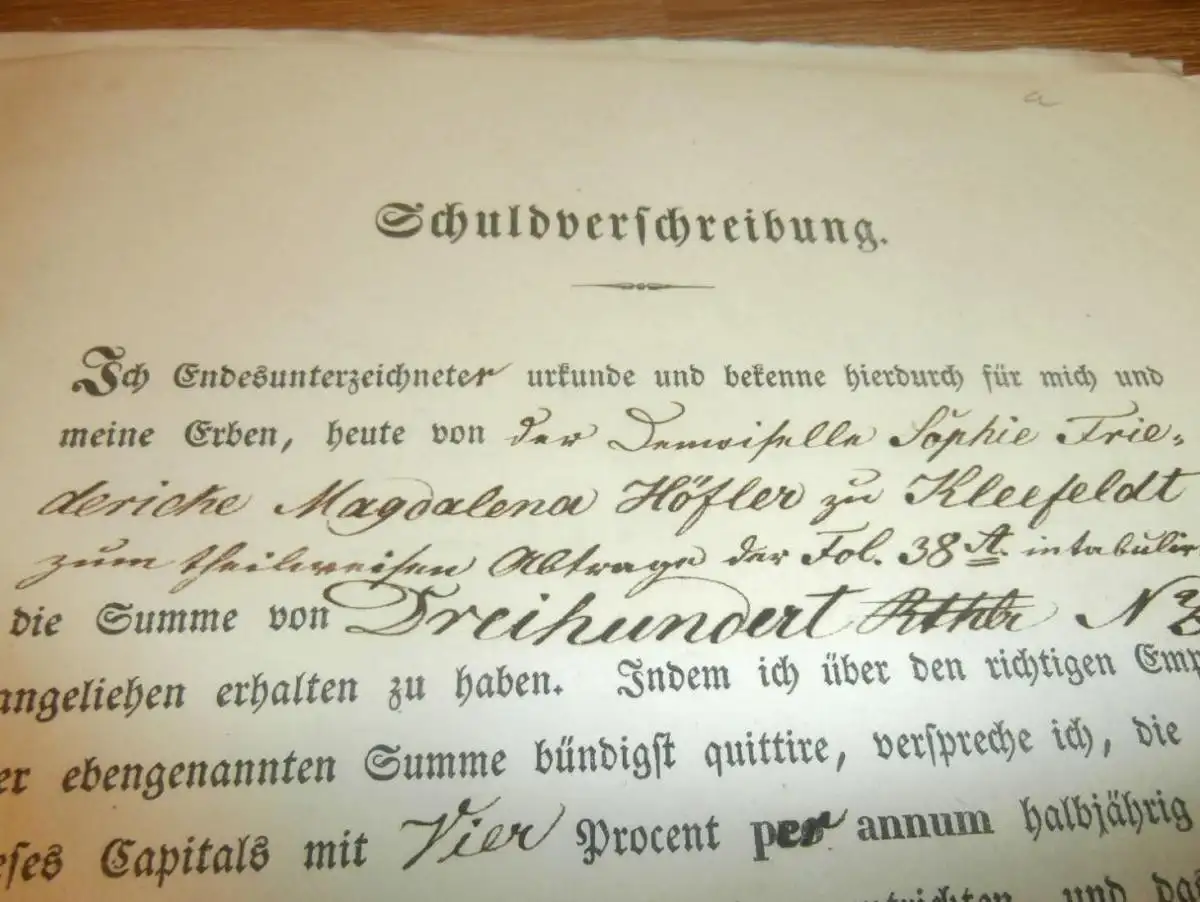 a
Schuldverschreibung.
Ich Endesunterzeichneter urkunde und bekenne hierdurch für mich und
meine Erben, heute von der Demoiselle Sophie Frie-
dericke Magdalena Höfler zu Kleefeldt
zum theilweisen Abtrage der Fol. 38 A. intabulir
die Summe von Dreihundert Rthlr
angeliehen erhalten zu haben. Indem ich über den richtigen Emp
er ebengenannten Summe bündigst quittire, verspreche ich, die
eses Capitals mit Vier Procent per annum halbjährig
ntrichten, und das